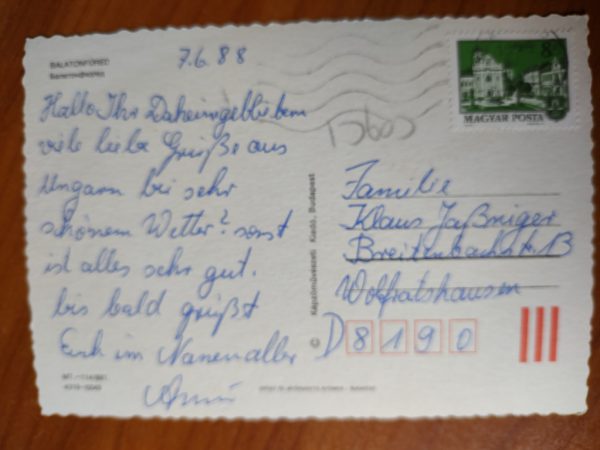 BALATONFÜRED
7.6.88
Hallo Ihr Daheimgebliebenen
viele liebe Grüße aus
Ungarn bei sehr
schönem Wetter? sonst
ist alles sehr gut.
bis bald grüßt
Euch im Namen aller
8
MAGYAR POSTA
Képzőművészeti Kiadó, Budapest
Familie
Klaus Jaßniger
Breitenbachstr. 13
Wolfratshausen
D 8190